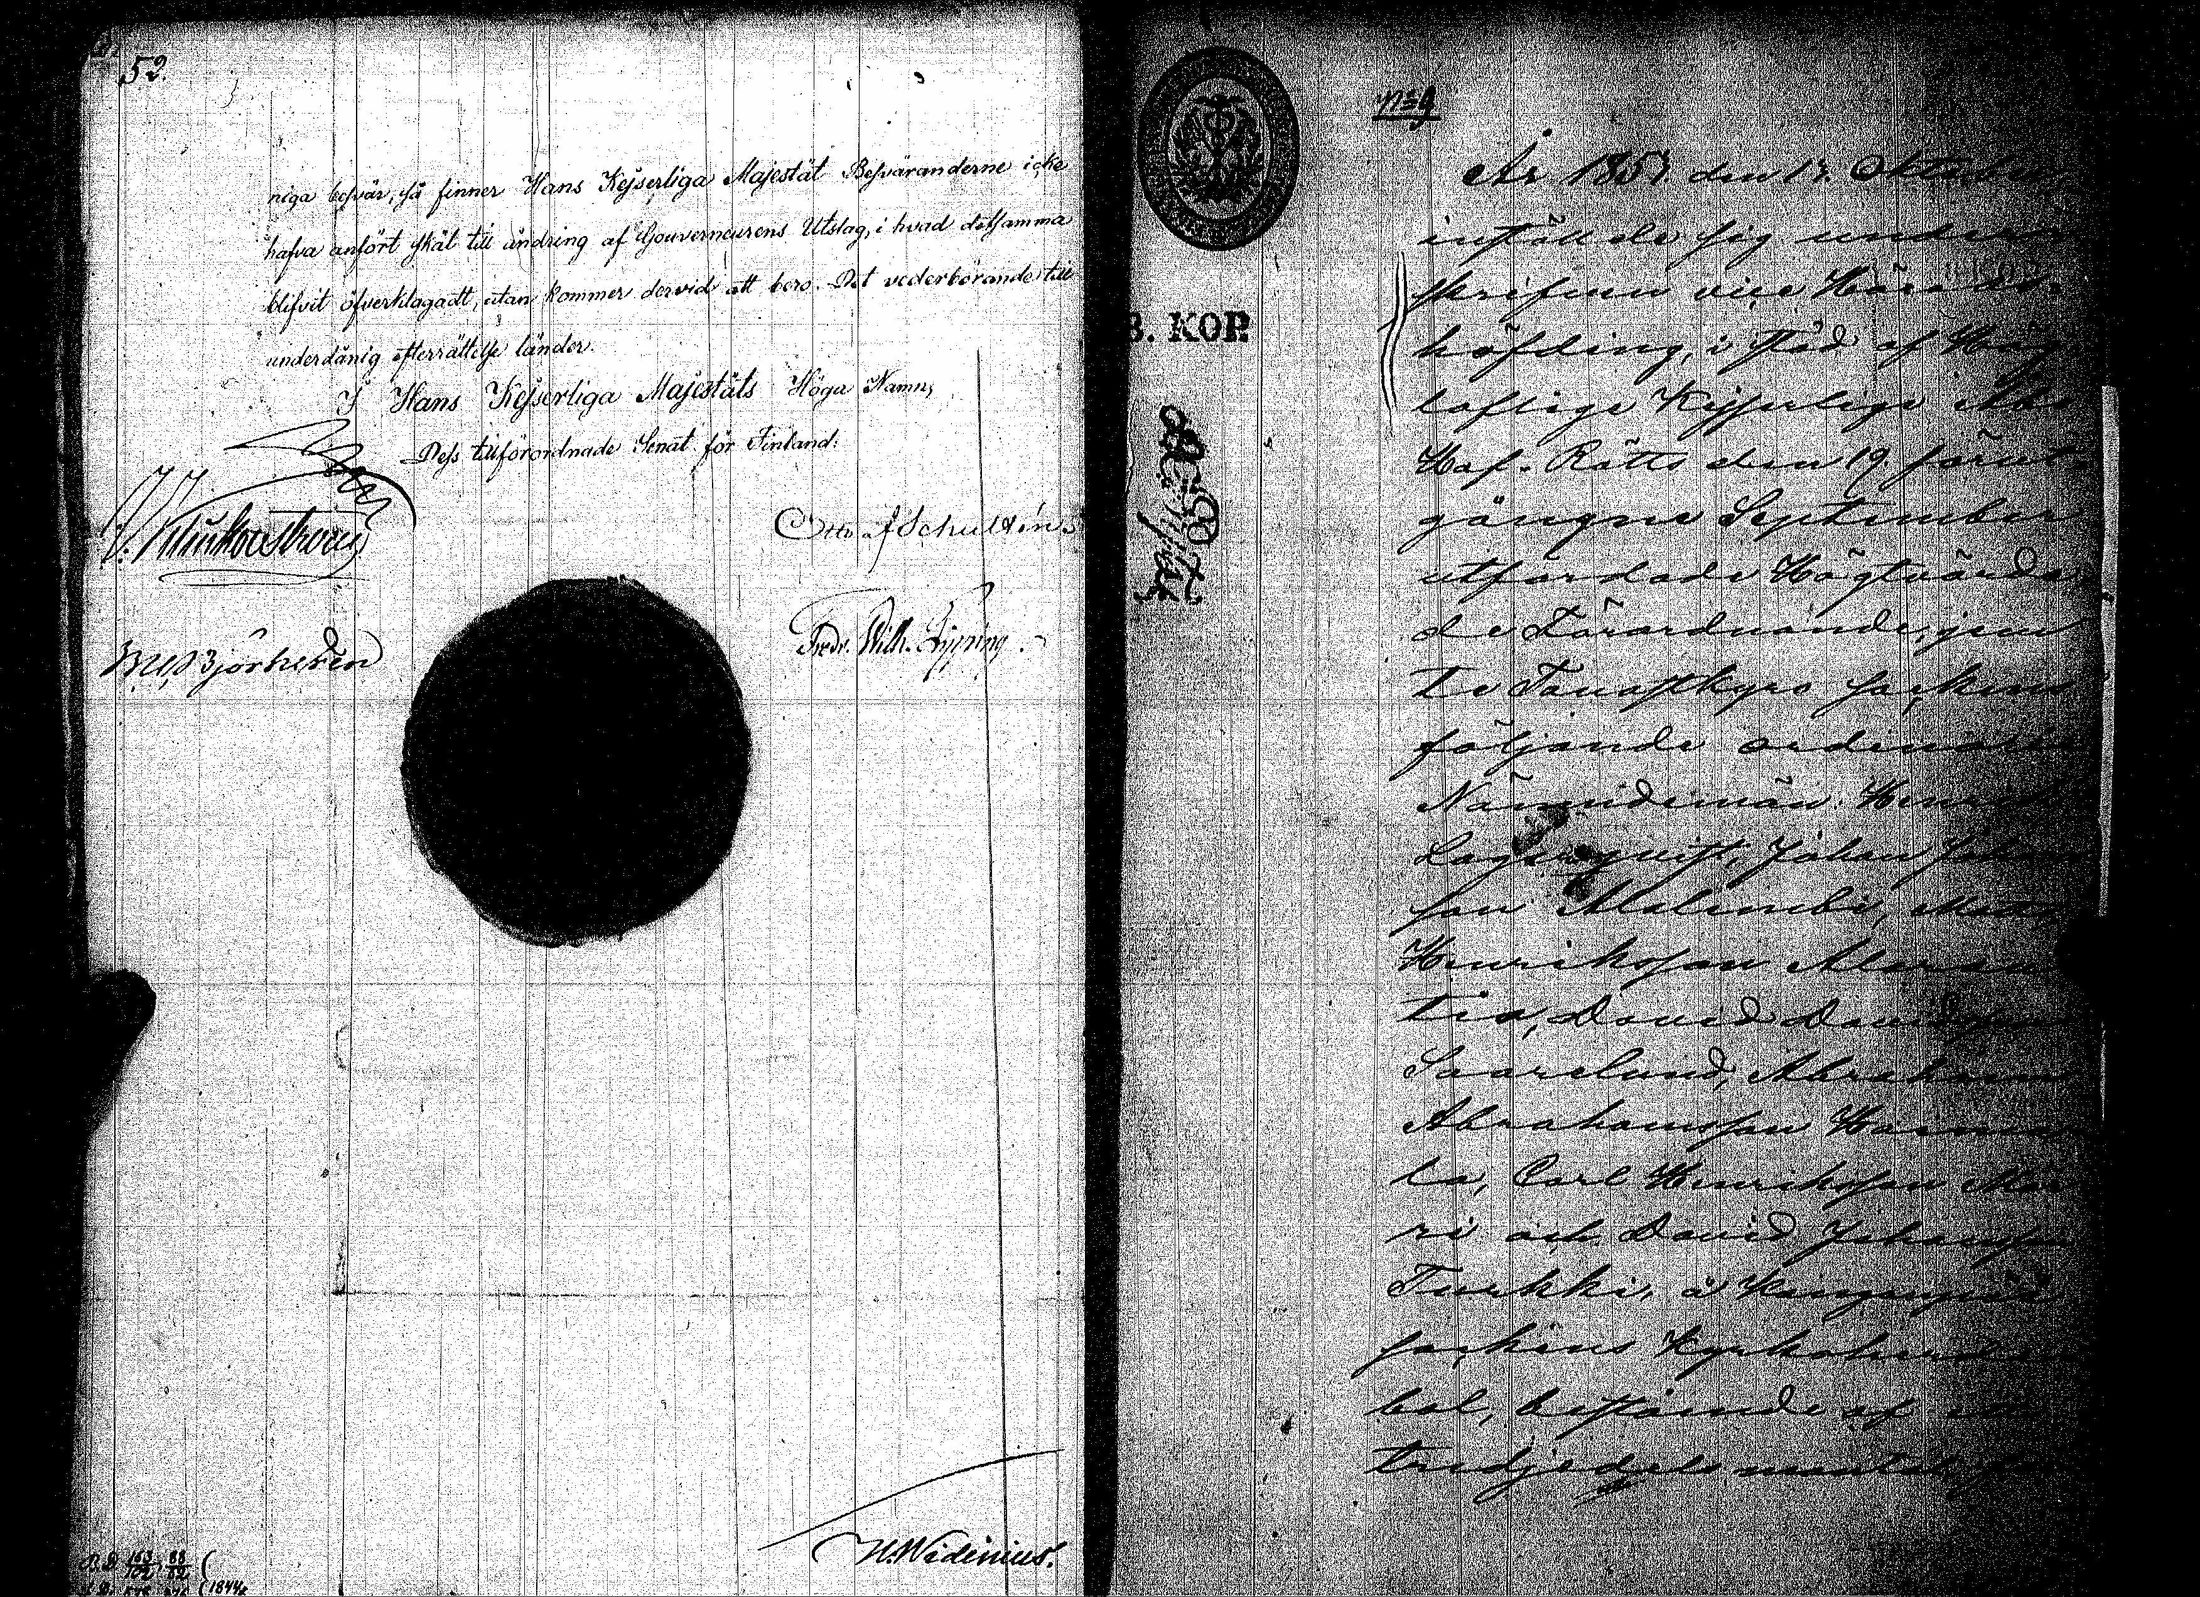 52.
niga besvär, så finner Hans Kejserliga Majestät Besväranderne icke
hafva anfört skäl till ändring af Gouverneurens Utslag, i hvad detsamma
blifvit öfverklagadt, utan kommer dervid att bero. Det vederbörande till
underdånig efterrättelse länder.
I Hans Kejserliga Majestäts Höga Namn,
Dess tillförordnade Senat för Finland:
Otto af Schultén
Fredr. Wilh. Pipping.
Björkstén
H. Widenius.
1844
No 9
B. KOP.
År 1857. den 17. Oktober
inställde sig under-
skrifven vice Härads-
höfding, i stöd af Hög-
loflige Kejserlige Åbo
Hof-Rätts den 19. förut-
gångne September
utfärdade Högtvörda-
de Förordnande, jem-
te Tavastkyro sockens
följande ordinarie
Nämndemän: Henrik
Lagerquist, Johan Johans-
son
Henriksson
tio, David Davidsson
Saarelund, Abraham
Abrahamsson
la, Carl Henriksson
ri och David Johansson
Turkki, å
sockens Kyrkoherde-
bol, bestående af en
tredjedels mantal,